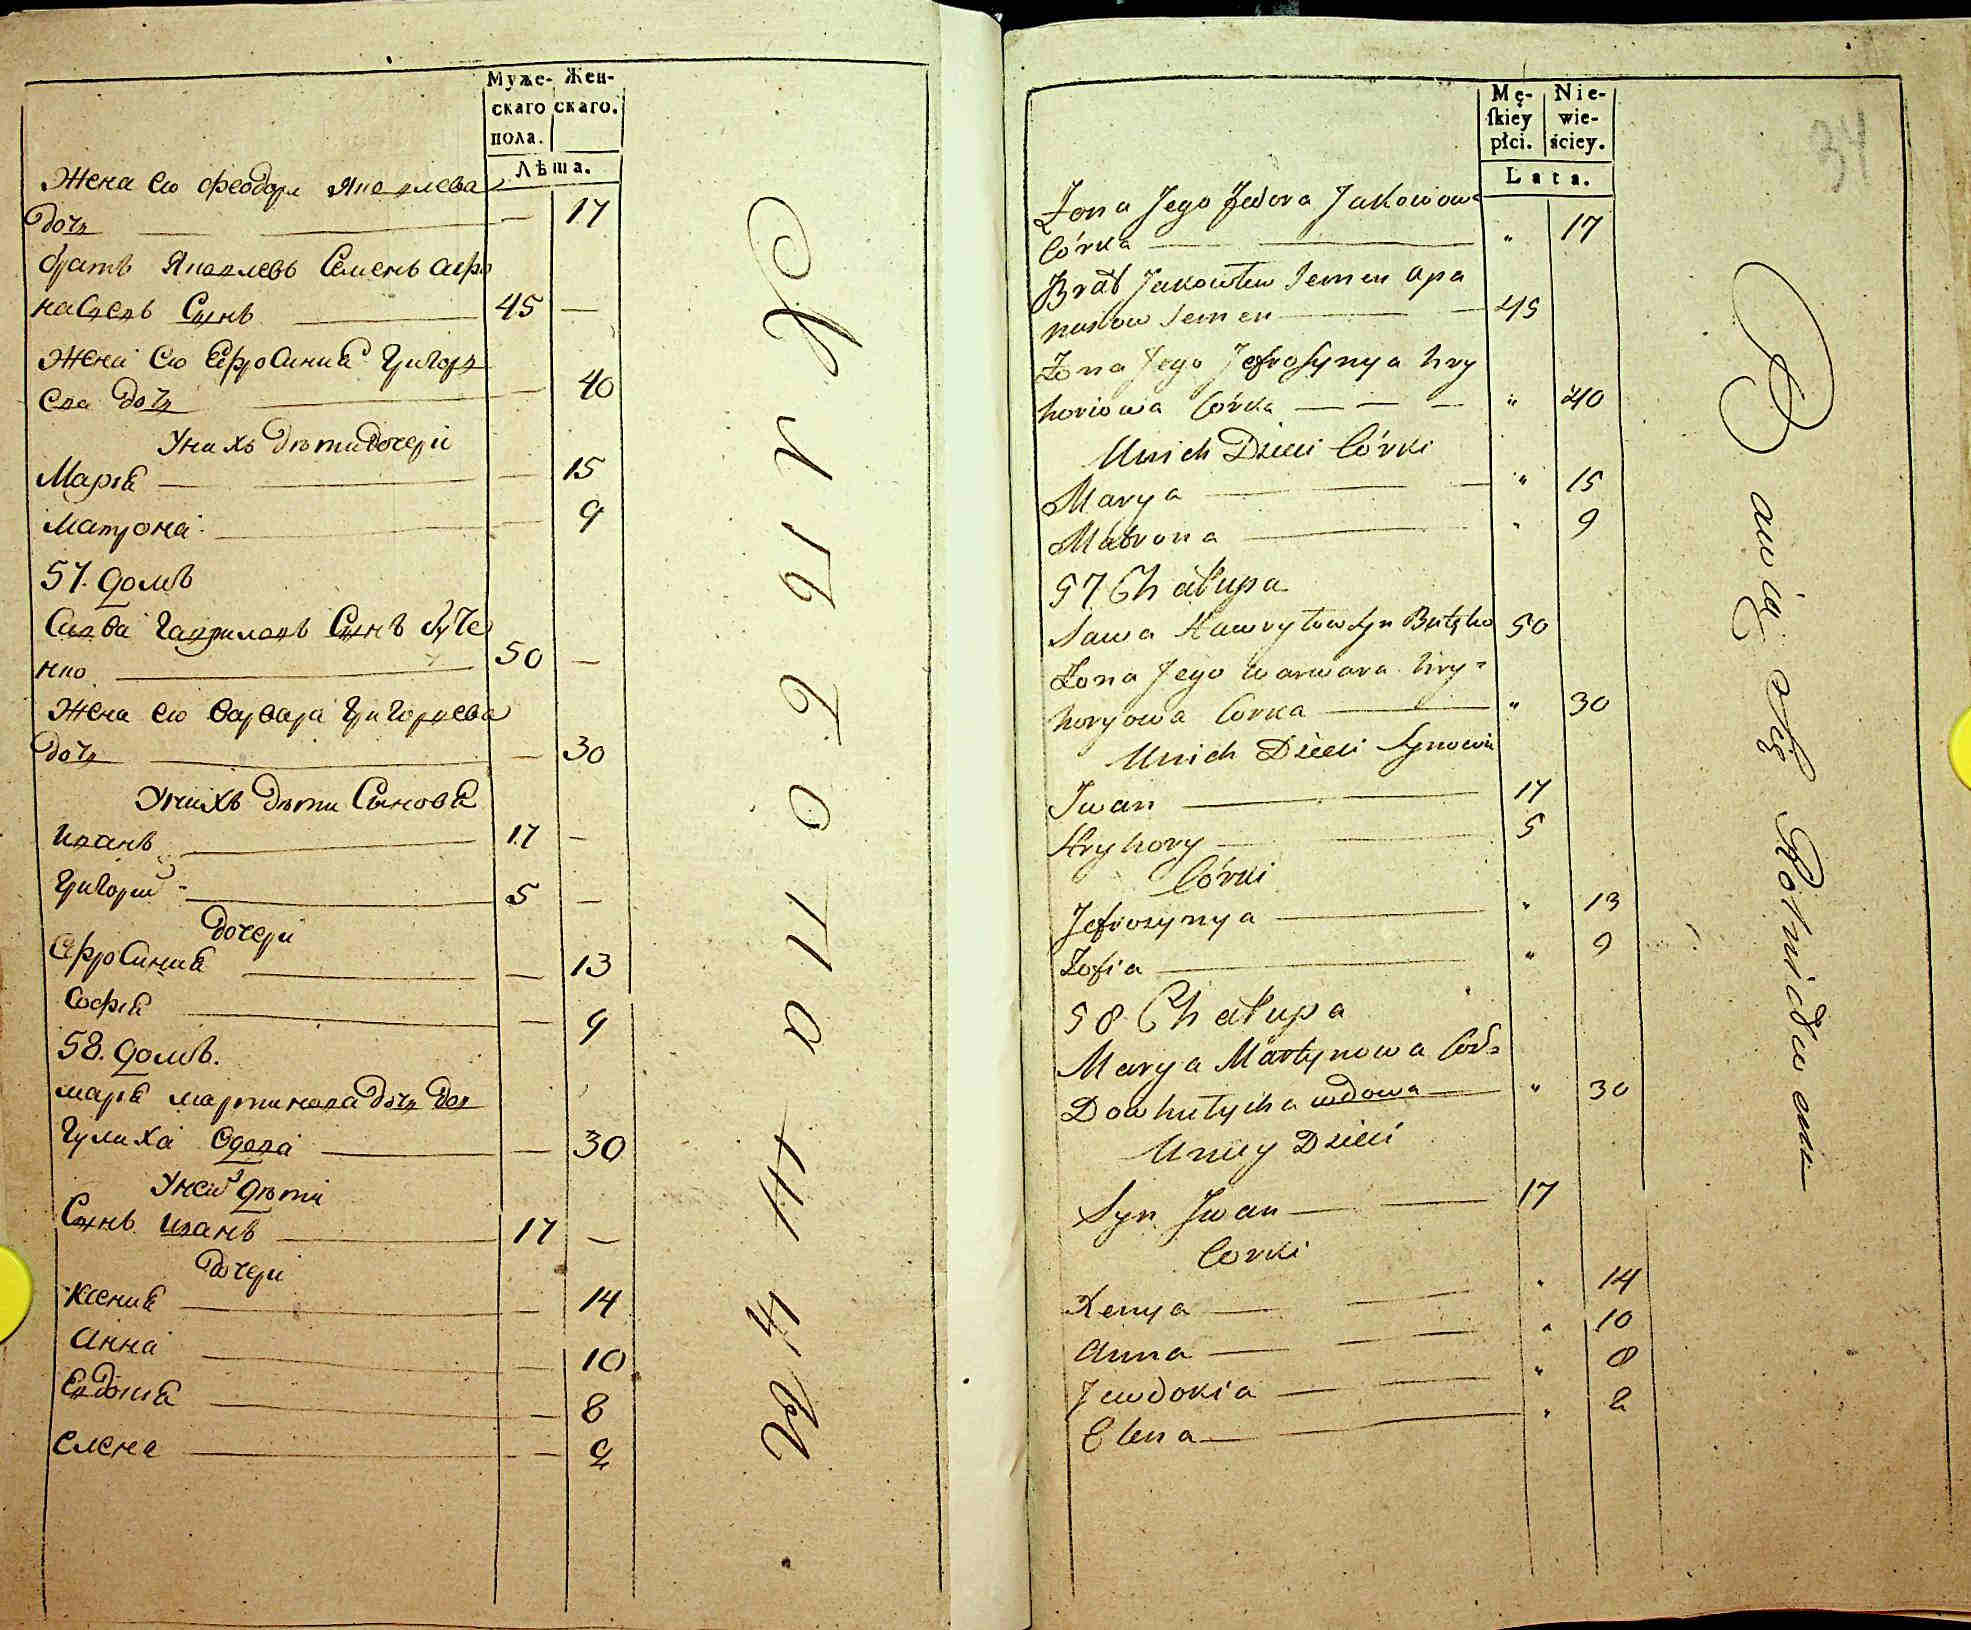 Муже-
скаго
пола.
Жен-
скаго.
Лѣта.
Жена ею Феодора Яковлева
дочъ — 17
братъ Яковлевъ Семенъ Афо
насовъ Сынъ 45 —
Жена ею Ефросиния Григоръ
ева дочъ — 40
Унихъ дѣти дочери
Мария — 15
Матрона — 9
57. домъ
Савва Гавриловъ Сынъ
нко 50 —
Жена ею Варвара Григорьева
дочъ — 30
Унихъ дѣти Сыновя
Иванъ 17 —
Григорий 5 —
дочери
Ефросиния — 13
София — 9
58. домъ.
мария мартинова дочъ Дов
гулиха вдова — 30
Уней дѣти
Сынъ Иванъ 17 —
дочери
Ксения — 14
Анна — 10
Евдокия — 8
Елена — 2
живутъ на
34
Mę-
skiey
płci.
Nie-
wie-
ściey.
Lata.
Żona Jego Fedora Jakowowa
Córka — " 17
Brat Jakowlew Semen Apa
nasow Semen — 45
Żona Jego Jefrosynya hry
horiowa Córka — — — " 40
Unich Dzieci Córki
Marya — " 15
Matrona — " 9
57 Chałupa
Sawa Hawryłow Syn 50
Żona Jego warwara hry-
horyowa Corka — " 30
Unich Dzieci Synowie
Jwan — 17
Hryhory — 5
Córki
Jefrozynya — " 13
Zofia — " 9
58 Chałupa
Marya Martynowa Cór-
Dowhulycha wdowa — " 30
Uniey Dzieci
Syn Jwan — 17
Corki
Xenya — " 14
Anna — " 10
Jewdokia — " 8
Elena — " 2
Bawią się Rolnictwem